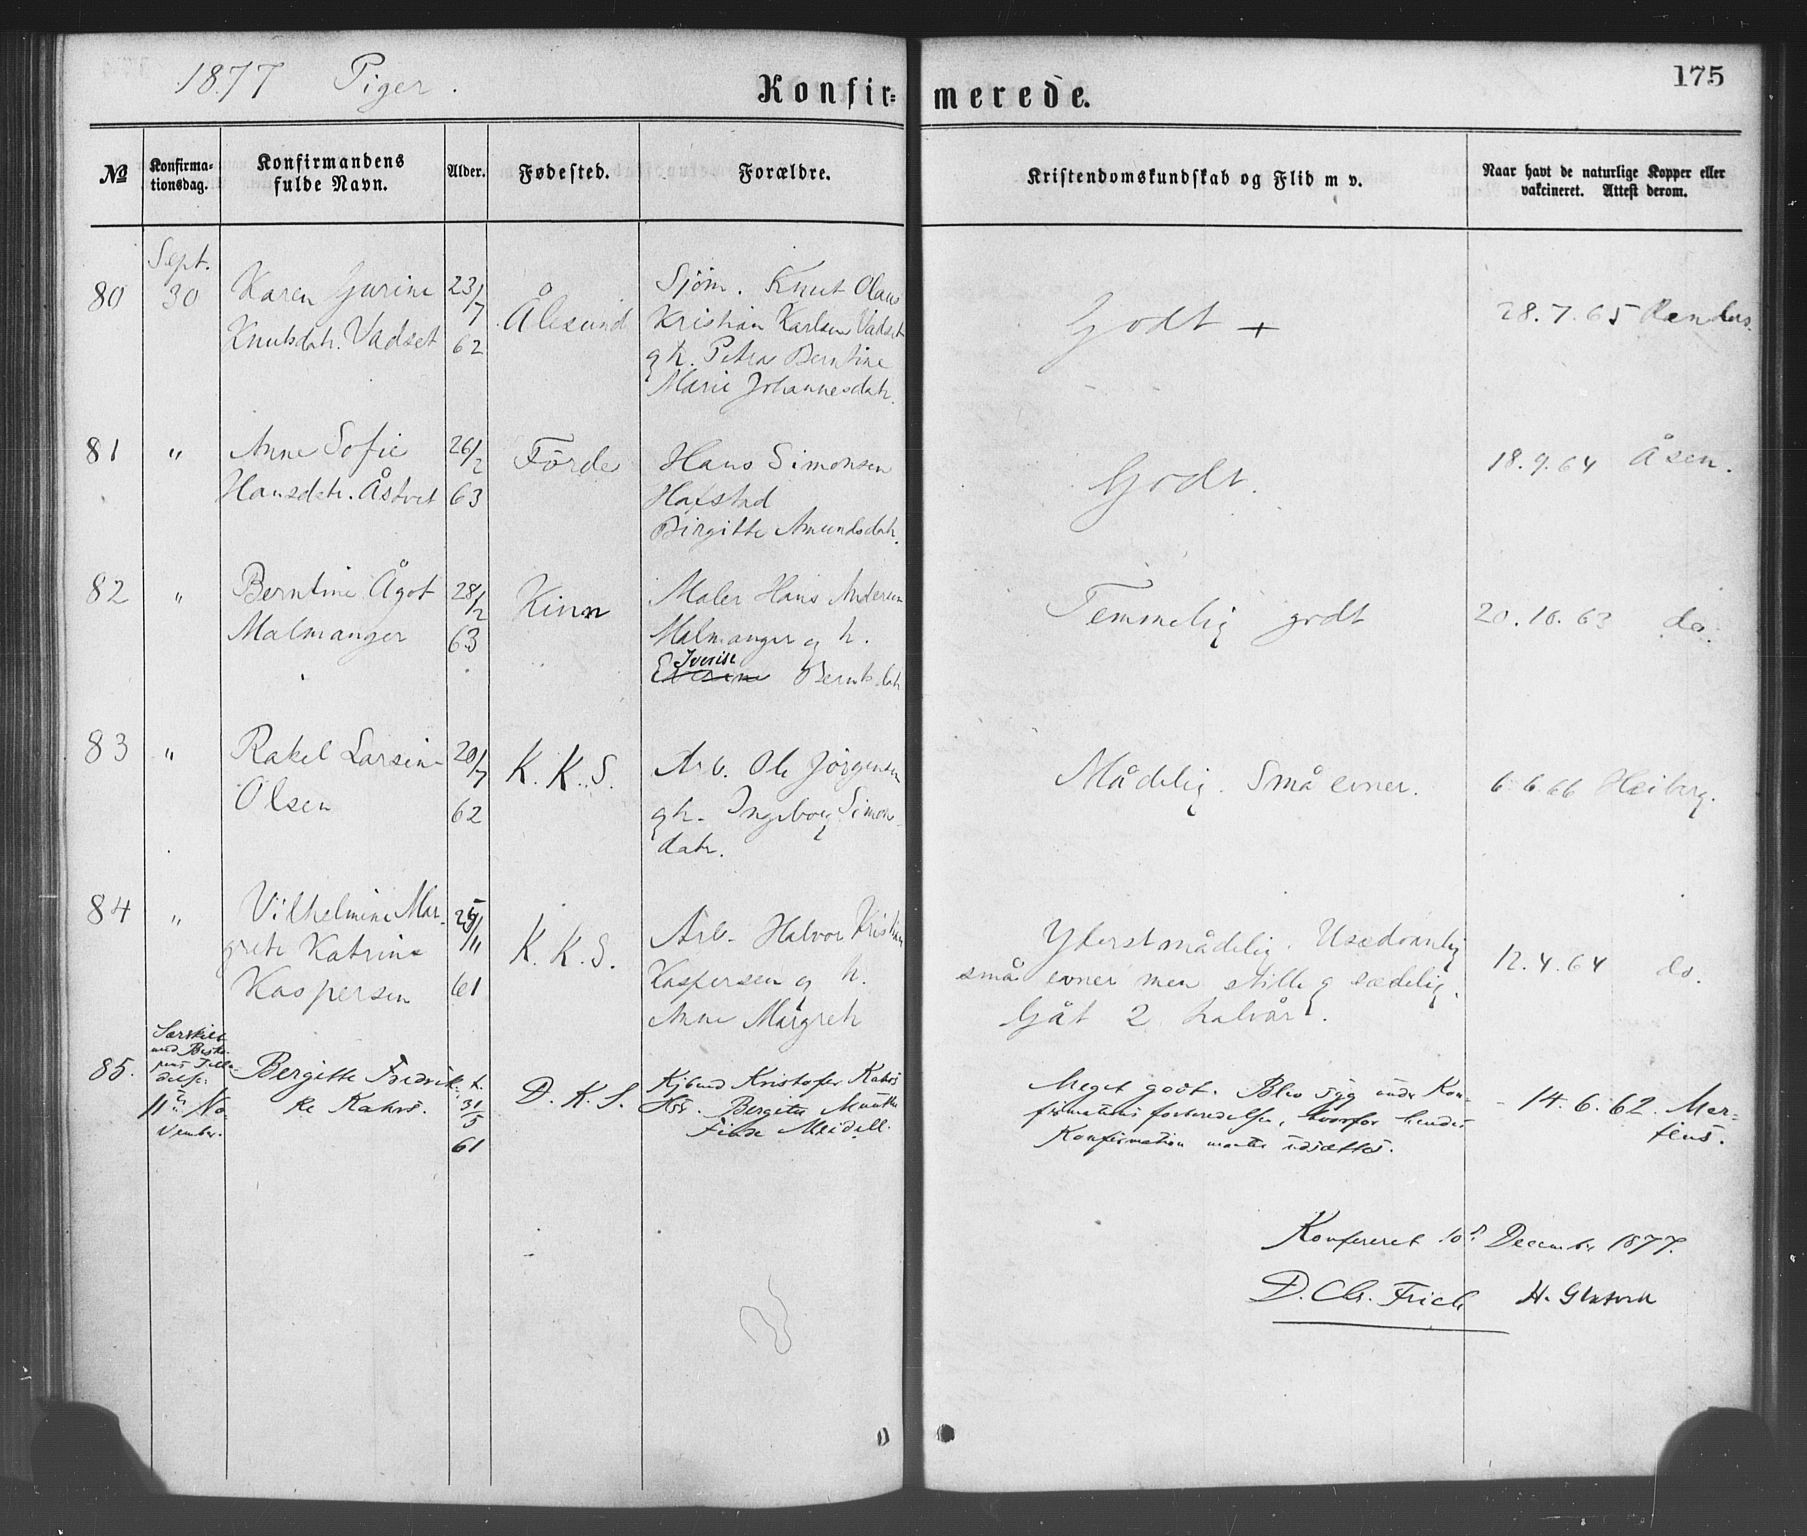 1877 Piger.
Konfir= merede.
175
No
Konfirma-
tionsdag.
Konfirmandens
fulde Navn.
Alder.
Fødested.
Forældre.
Kristendomskundskab og Flid m v.
Naar havt de naturlige Kopper eller
vakcineret. Attest derom.
80
Sept.
30
Karen Gurine
Knutsdatr. Vadset
23/7
62
Ålesund
Sjöm. Knut Olaus
Kristian Karlsen Vadset
gh. Petra Berntine
Marie Johannesdatr.
Godt +
28.7.65
81
"
Anne Sofie
Hansdatr. Åstvet
26/2
63
Förde
Hans Simonsen
Hafstad
Birgitte Amundsdatr.
Godt.
18.9.64 Åsen.
82
"
Berntine Ågot
Malmanger
28/2
63
Kinn
Maler Hans Andersen
Malmanger og h.
Berntsdatr
Temmelig godt
20.10.63 do.
83
"
Rakel Larsine
Olsen
20/7
62
K. K. S.
Arb. Ole Jörgensen
gh. Ingeborg Simons-
datr.
Mådelig. Små evner.
6.6.66 Heiberg.
84
"
Vilhelmine Mar-
grete Katrine
Kaspersen
/11
61
K. K. S.
Arb. Halvor Kristian
Kaspersen og h.
Anne Margrete
Yderst mådelig. Usædvanlig
små evner men stille g sædelig.
Gåt 2 halvår.
12.4.64 do.
85.
Særskilt
med Bisko-
pens Tilla-
delse.
11te No-
vember.
Bergitte Fredrik-
ke Kahrs.
31/5
61
D. K. S.
Kjbmd Kristofer Kahrs
Bergitte
Meidell.
Meget godt. Blev syg under Kon-
firmationsforberedelsen, hvorfor hendes
Konfirmation maatte udsættes.
14.6.62. Mar-
tens.
Konfereret 10d December 1877.
D. Chr. Frich